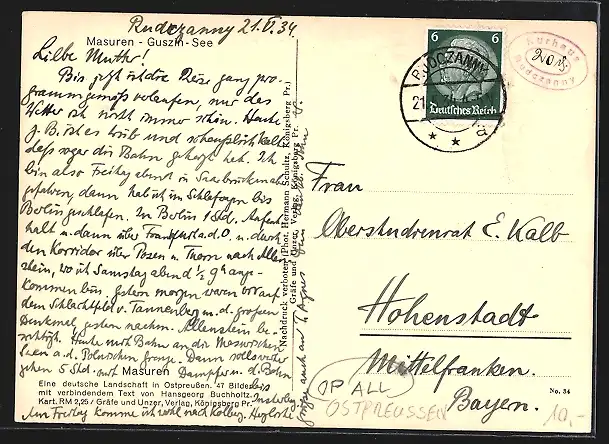 Rudczanny 21.VI.34
Masuren - Guszin-See
Liebe Mutter!
Bis jetzt ist die Reise ganz pro-
grammgemäss verlaufen, nur das
Wetter ist nicht immer schön. Heute
z. B. ist es trüb und scheusslich kalt
dass sogar die Bahn geheizt hat. Ich
bin also Freitag abend in Saarbrücken ab-
gefahren, dann hab ich im Schlafwagen bis
Berlin geschlafen. In Berlin 1 Std. Aufent-
halt u. dann über Frankfurt a. d. O. u. durch
den Korridor über Posen u. Thorn nach Allen-
stein, wo ich Samstag abend ½ 9h ange-
kommen bin. Gestern morgen waren wir auf
dem Schlachtfeld v. Tannenberg u. d. grossen
Denkmal, gestern nachm. Allenstein be-
sichtigt. Heute mit Bahn an die Masurischen
Seen a. d. Polnischen Grenze. Dann
5 Std. mit Dampfer u. d. Bahn
bis
Masuren
Eine deutsche Landschaft in Ostpreußen. 47 Bilder
mit verbindendem Text von Hansgeorg Buchholtz.
Kart. RM 2,25 / Gräfe und Unzer, Verlag, Königsberg Pr.
Insterburg
Am Freitag komme ich wohl nach Kolberg. Herzlichst
Nachdruck verboten (Phot. Hermann Schultz, Königsberg Pr.)
Gräfe und Unzer, Verlag, Königsberg Pr.
6 6
Deutsches Reich
RUDCZANNY
21
Kurhaus
Rudczanny
Frau
Oberstudienrat E. Kalb
Hohenstadt
Mittelfranken.
Bayern.
No. 34
OP ALL
OSTPREUSSEN
10,-